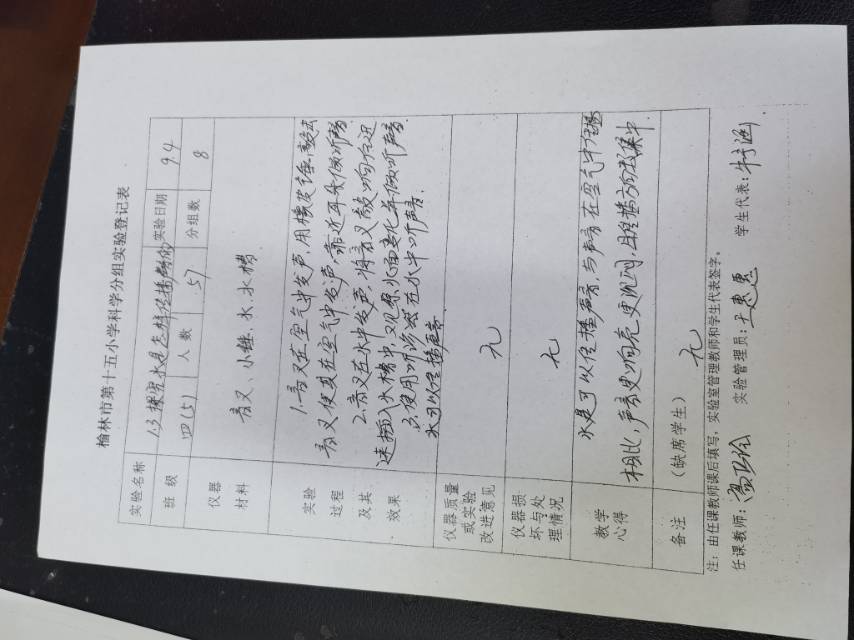 榆林市第十五小学科学分组实验登记表
实验名称 1.3探究水是怎样传播声音的 实验日期 9.4
班级 四(5) 人数 57 分组数 8
仪器材料 音叉、小锤、水、水槽
实验过程及其效果
1.音叉在空气中发声,用橡皮锤敲击
音叉使其在空气中发声,靠近耳朵做听声音
2.音叉在水中发声,将音叉敲响后迅
速插入水槽中,观察水面变化并做听声音.
3.使用听诊器在水中听声音.
水可以传播声音
仪器质量或实验改进意见 无
仪器损坏与处理情况 无
教学心得
水是可以传播声音,与声音在空气中传播
相比,声音更响亮更沉闷,且传播方式集中.
备注 (缺席学生) 无
注:由任课教师课后填写,实验室管理教师和学生代表签字。
任课教师: 实验管理员:王惠惠 学生代表: